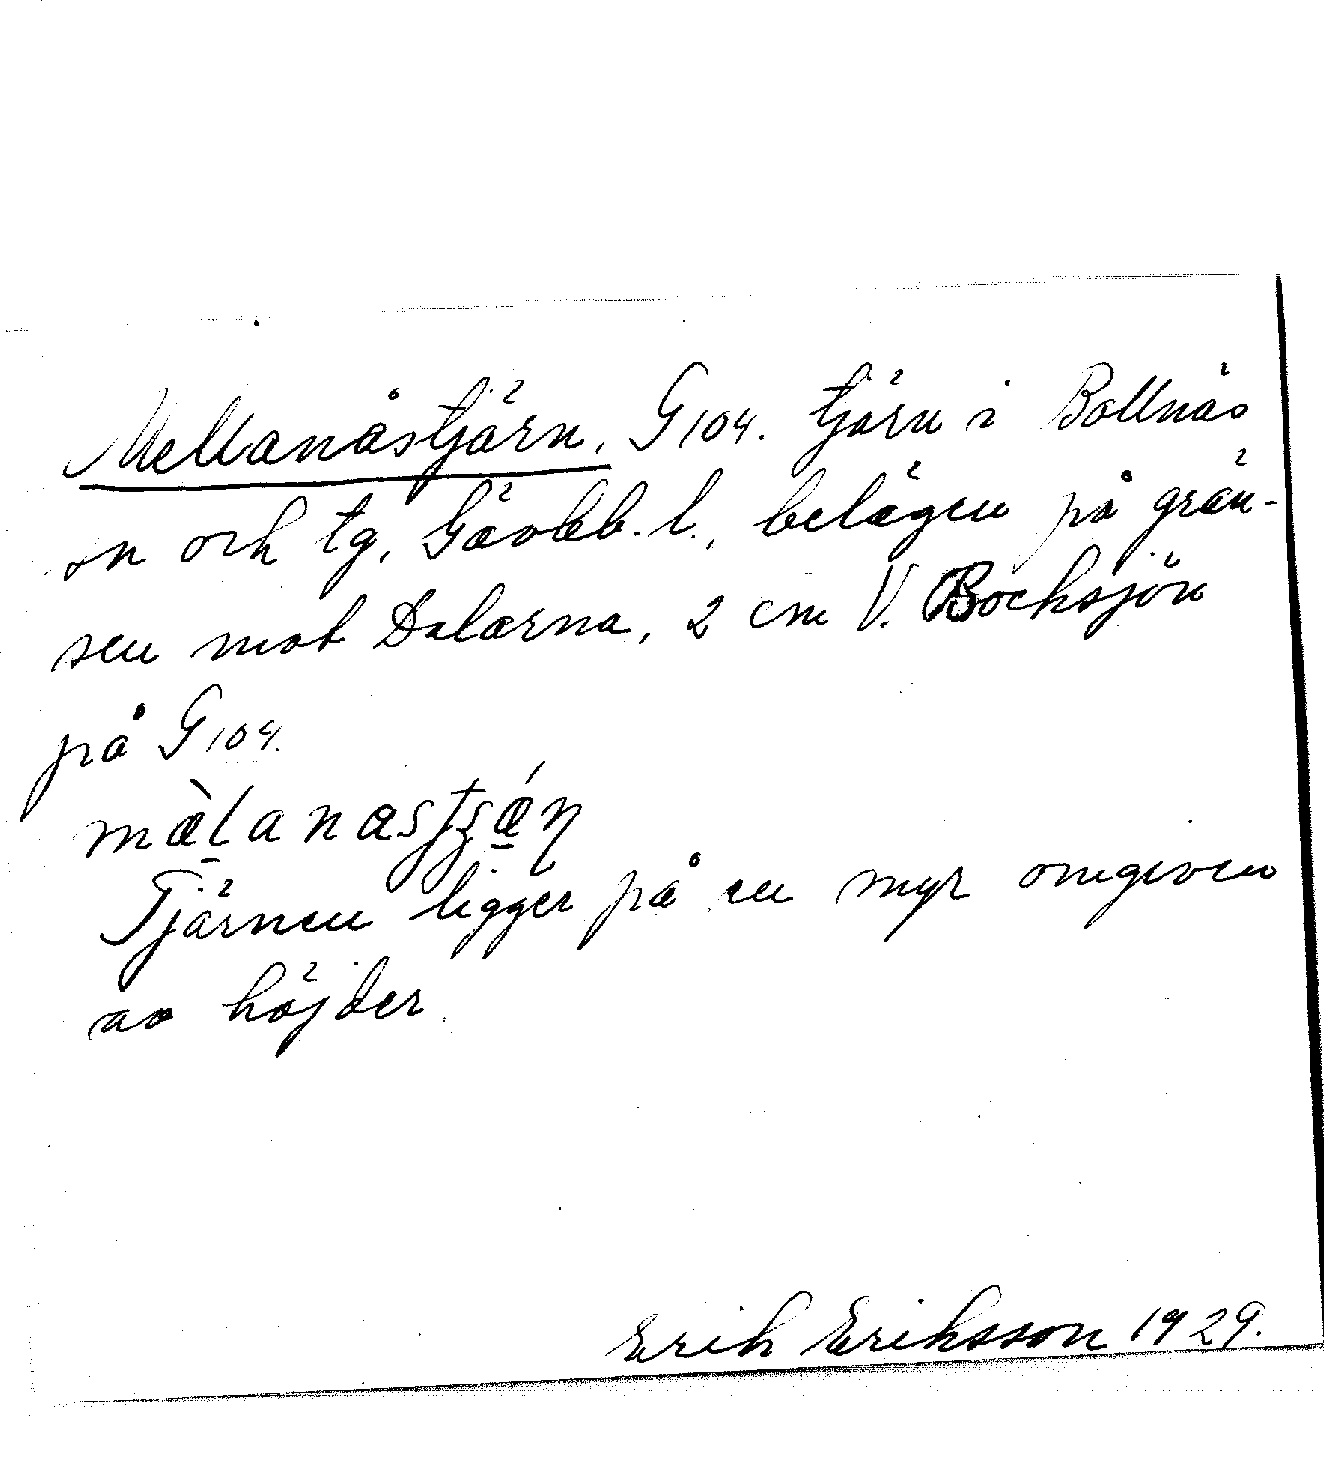 Mellanåstjärn, G104. tjärn i Bollnäs
sn och tg, Gävleb. l., belägen på grän-
sen mot Dalarna, 2 cm V. Bocksjön
på G104.
Tjärnen ligger på en myr omgiven
av höjder.
Erik Eriksson 1929.